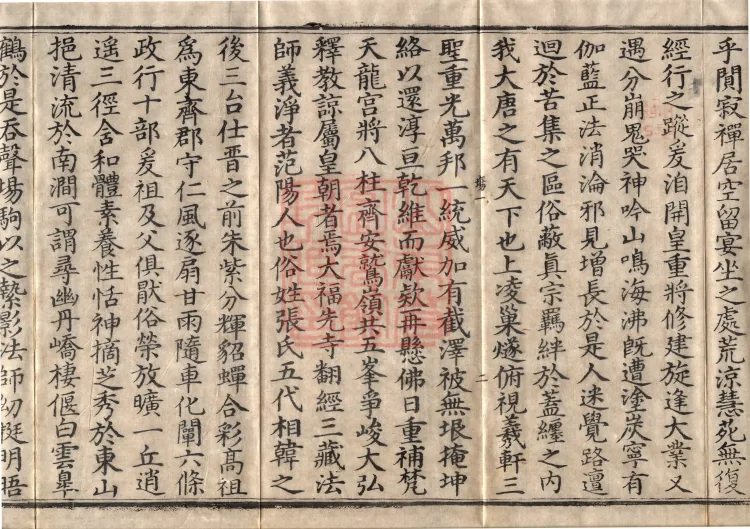 乎閴寂禪居空留宴坐之處荒涼慧苑無復
經行之蹤爰洎開皇重將修建旋逢大業又
遇分崩鬼哭神吟山鳴海沸旣遭塗炭寧有
伽藍正法消淪邪見增長於是人迷覺路邅
迴於苦集之區俗蔽真宗羈絆於蓋纏之内
我大唐之有天下也上凌巢燧俯視羲軒三
聖重光萬邦一統威加有截澤被無垠掩坤
絡以還淳亘乾維而獻欵再懸佛日重補梵
天龍宮將八柱齊安鷲嶺共五峯爭峻大弘
釋教諒屬皇朝者焉大福先寺翻經三藏法
師義淨者范陽人也俗姓張氏五代相韓之
後三台仕晉之前朱紫分輝貂蟬合彩髙祖
爲東齊郡守仁風逐扇甘雨隨車化闡六條
政行十部爰祖及父俱猒俗榮放曠一丘逍
遥三徑含和體素養性恬神摘芝秀於東山
挹清流於南澗可謂尋幽丹嶠棲偃白雲皐
鶴於是吞聲場駒以之縶影法師幼挺明晤